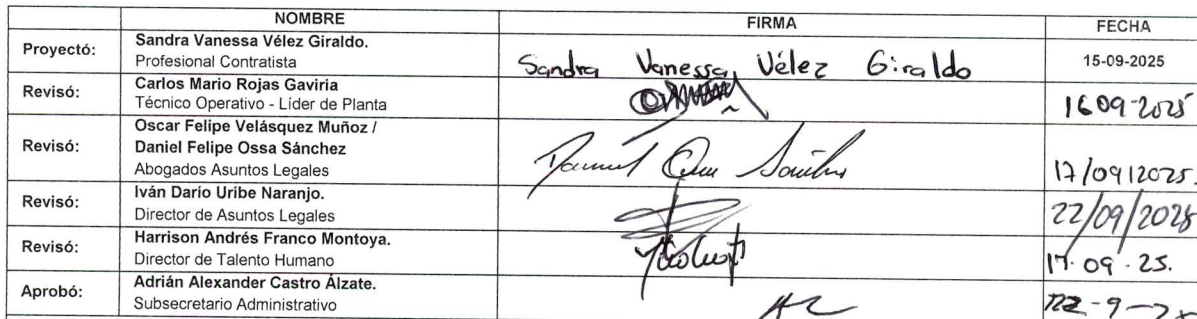 NOMBRE FIRMA FECHA
Proyectó: Sandra Vanessa Vélez Giraldo.
Profesional Contratista
Sandra Vanessa Vélez Giraldo 15-09-2025
Revisó: Carlos Mario Rojas Gaviria
Técnico Operativo - Líder de Planta
16 09-2025
Revisó: Oscar Felipe Velásquez Muñoz /
Daniel Felipe Ossa Sánchez
Abogados Asuntos Legales
17/09/2025.
Revisó: Iván Darío Uribe Naranjo.
Director de Asuntos Legales
22/09/2025
Revisó: Harrison Andrés Franco Montoya.
Director de Talento Humano
17.09.25.
Aprobó: Adrián Alexander Castro Álzate.
Subsecretario Administrativo